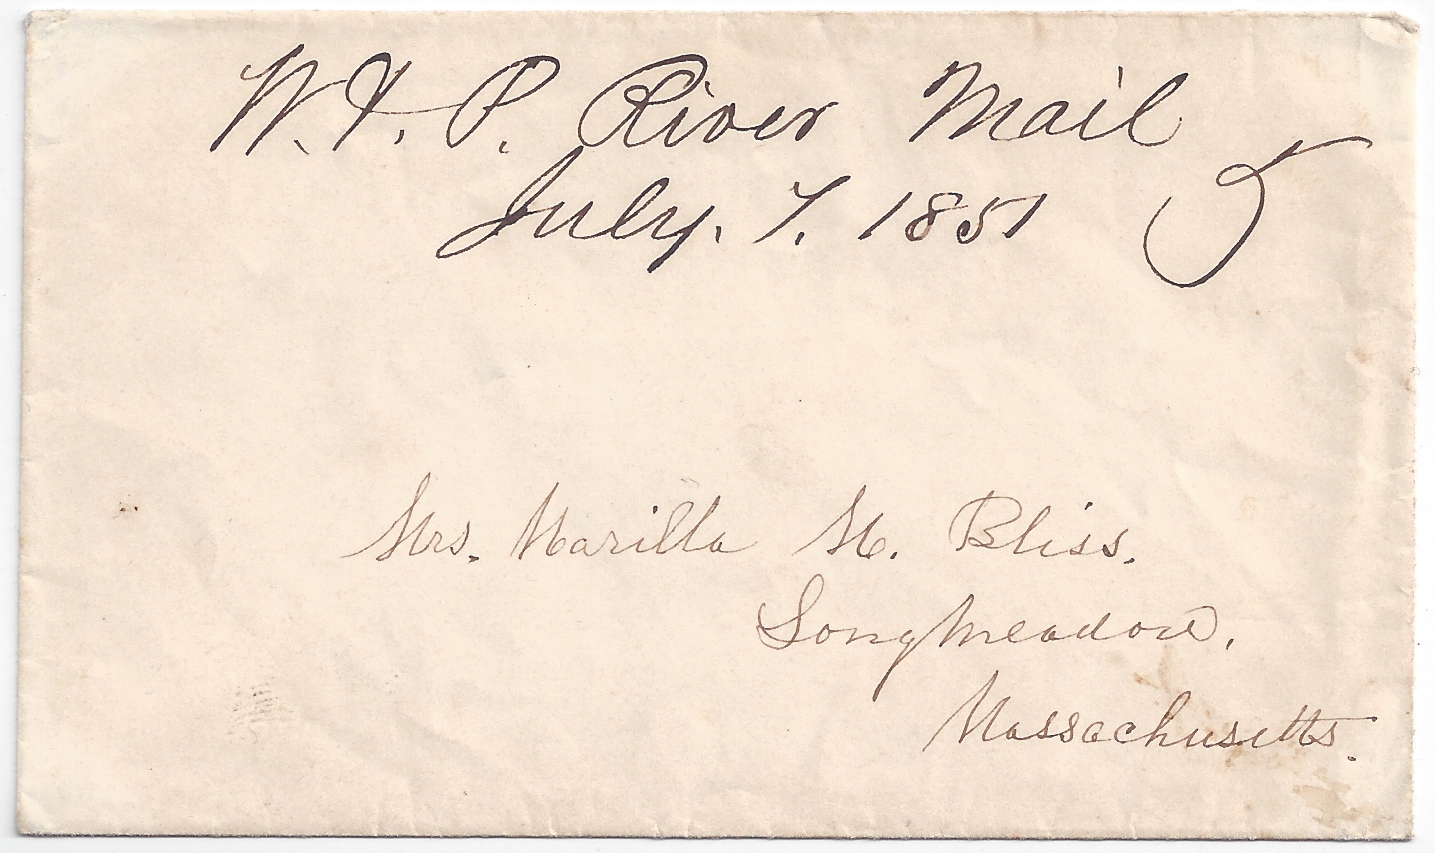 P. River Mail
July. 7. 1851
5
Mrs. Marilla M. Bliss.
Longmeadow,
Massachusetts.